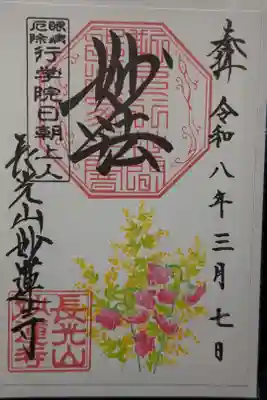 奉拝
令和八年三月七日
妙法
眼病
厄除
行学院日朝上人
長光山妙蓮寺
長光山
妙蓮寺